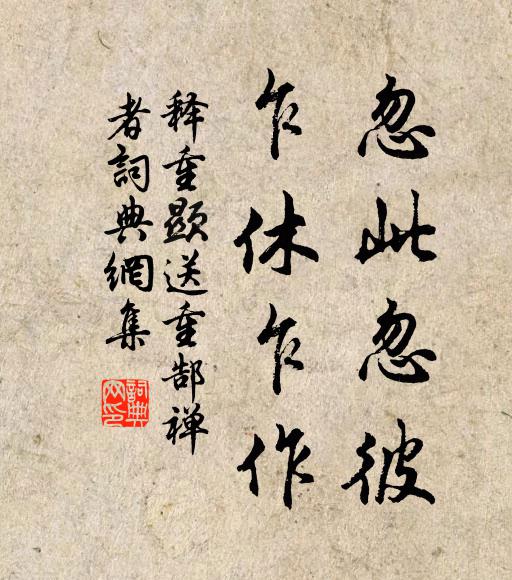 忽此忽彼
乍休乍作
释重顯送重郜禅
者詞典網集
詞典
网印